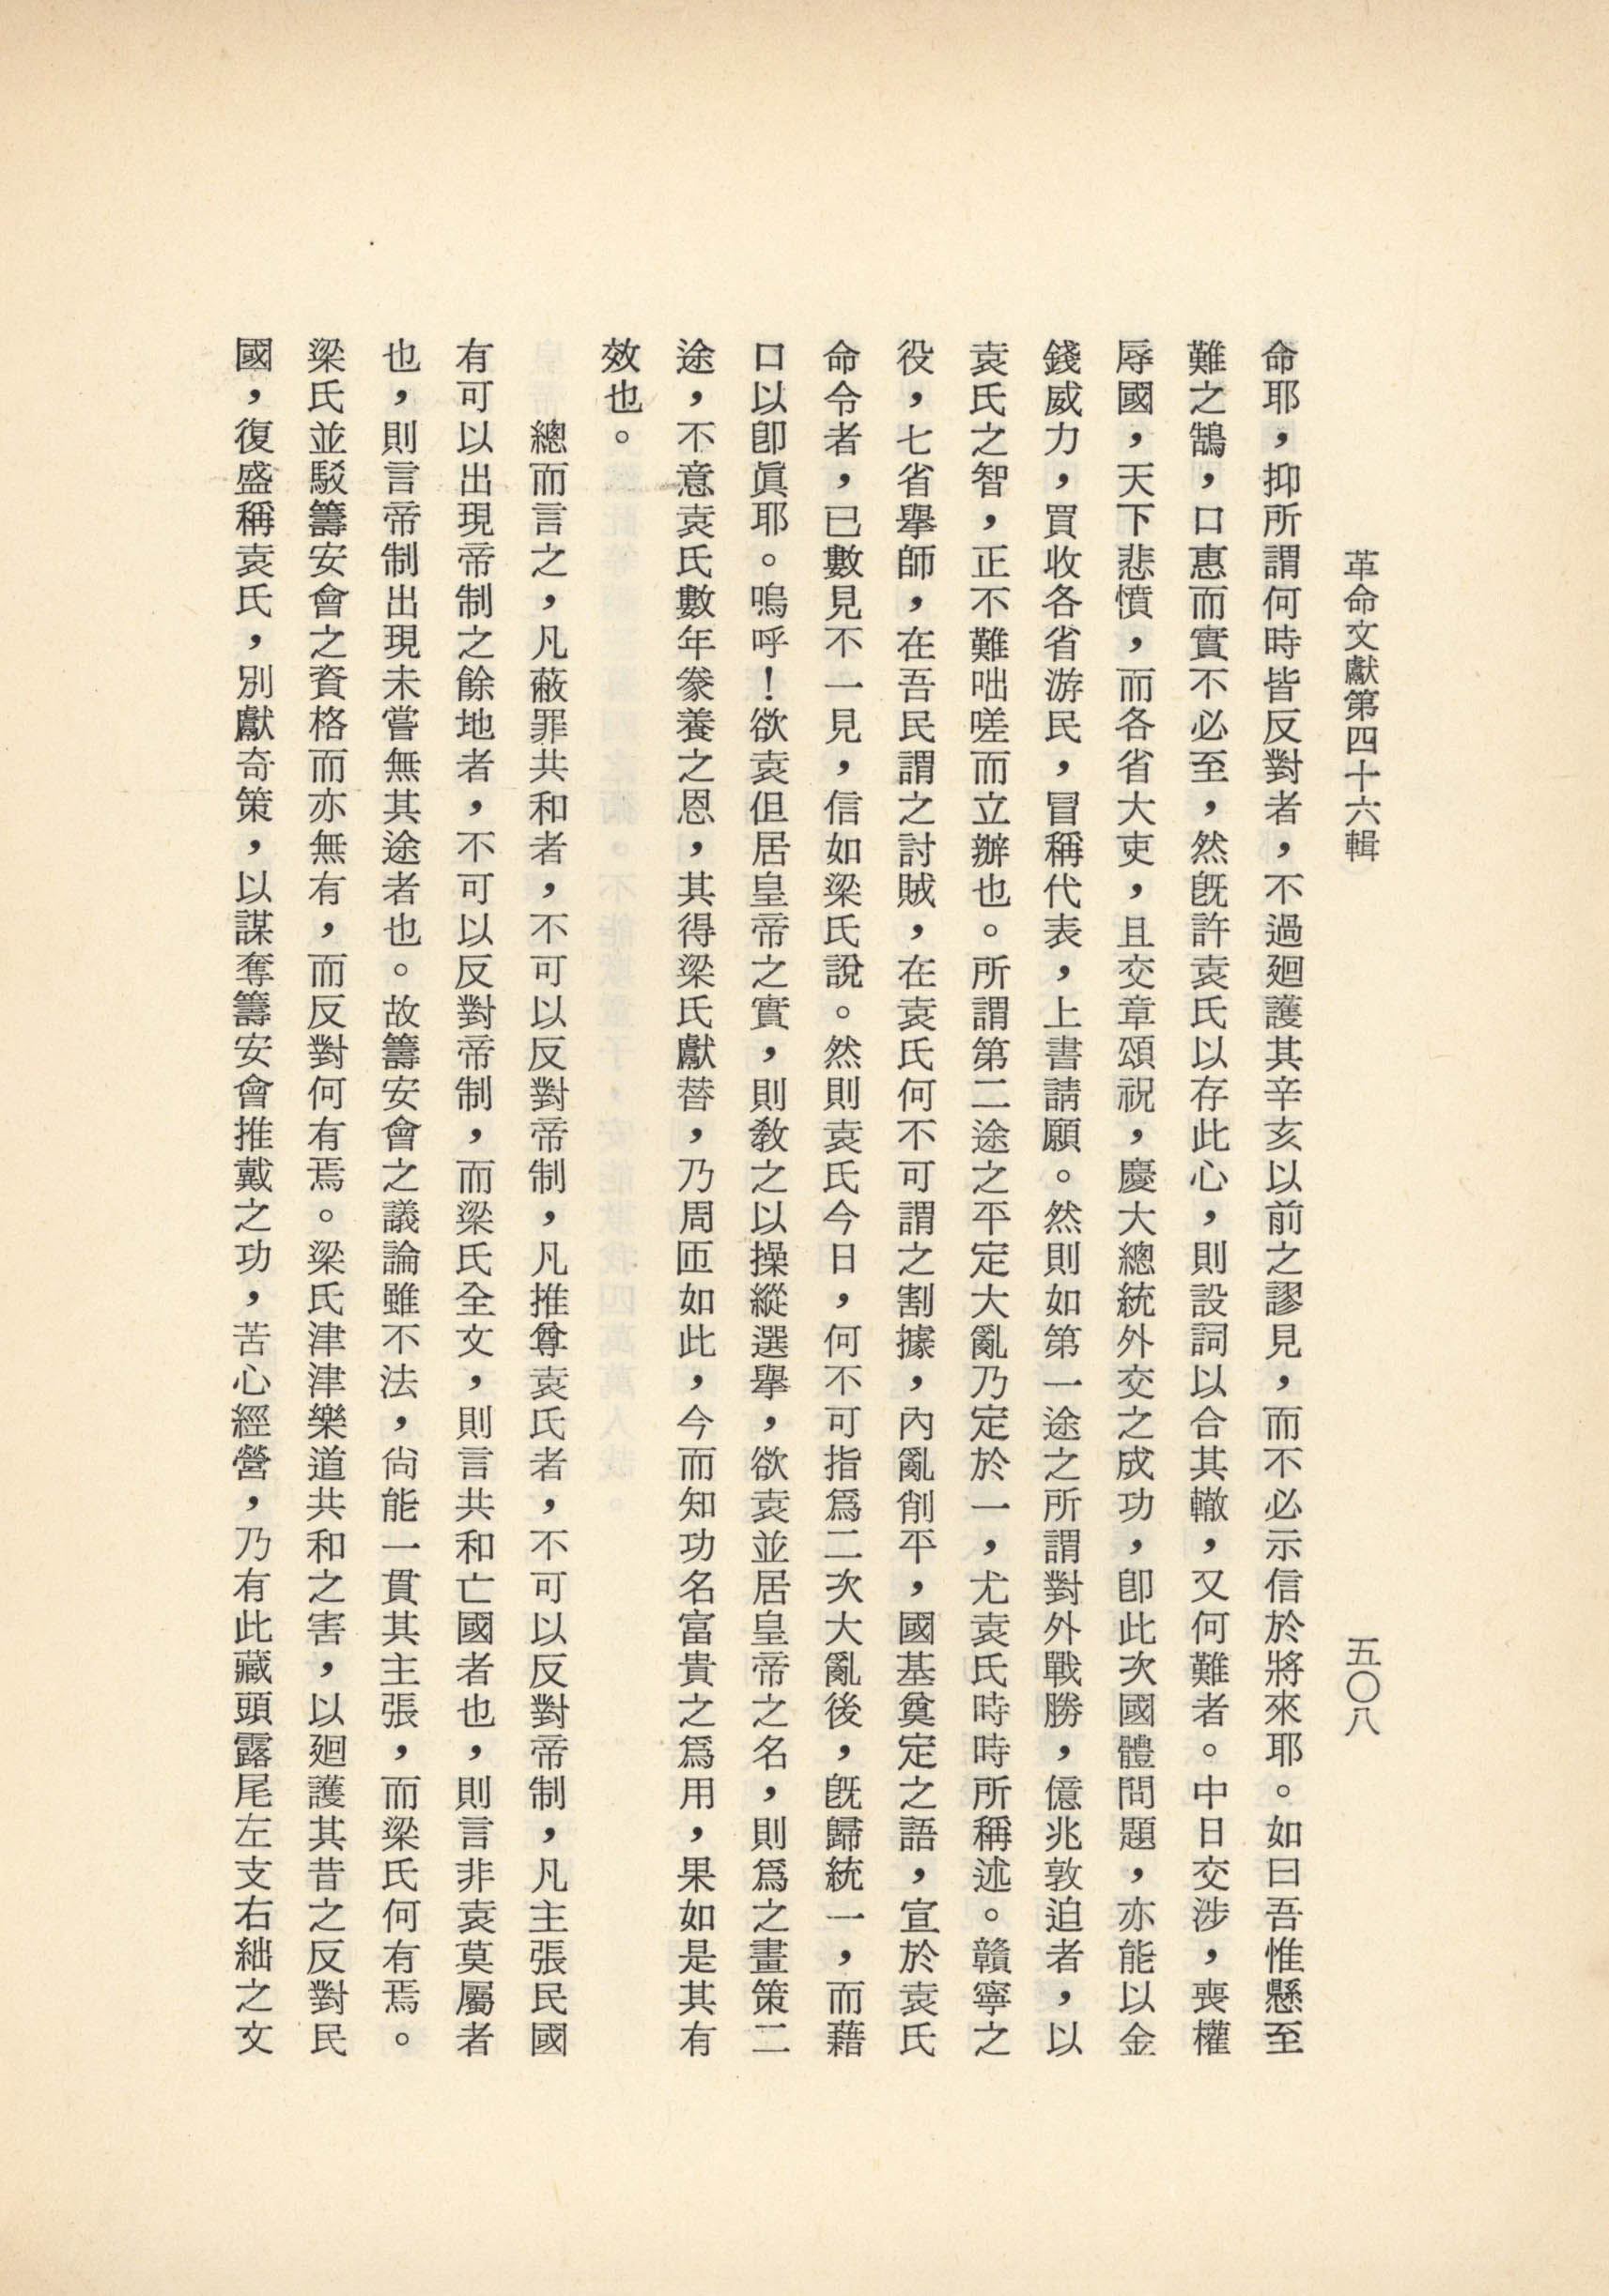 革命文獻第四十六輯
五〇八
命耶，抑所謂何時皆反對者，不過廻護其辛亥以前之謬見，而不必示信於將來耶。如曰吾惟懸至
難之鵠，口惠而實不必至，然旣許袁氏以存此心，則設詞以合其轍，又何難者。中日交涉，喪權
辱國，天下悲憤，而各省大吏，且交章頌祝，慶大總統外交之成功，卽此次國體問題，亦能以金
錢威力，買收各省游民，冒稱代表，上書請願。然則如第一途之所謂對外戰勝，億兆敦迫者，以
袁氏之智，正不難咄嗟而立辦也。所謂第二途之平定大亂乃定於一，尤袁氏時時所稱述。贛寧之
役，七省擧師，在吾民謂之討賊，在袁氏何不可謂之割據，內亂削平，國基奠定之語，宣於袁氏
命令者，已數見不一見，信如梁氏說。然則袁氏今日，何不可指爲二次大亂後，旣歸統一，而藉
口以卽眞耶。嗚呼！欲袁但居皇帝之實，則敎之以操縱選擧，欲袁並居皇帝之名，則爲之畫策二
途，不意袁氏數年豢養之恩，其得梁氏獻替，乃周匝如此，今而知功名富貴之爲用，果如是其有
效也。
總而言之，凡蔽罪共和者，不可以反對帝制，凡推尊袁氏者，不可以反對帝制，凡主張民國
有可以出現帝制之餘地者，不可以反對帝制，而梁氏全文，則言共和亡國者也，則言非袁莫屬者
也，則言帝制出現未嘗無其途者也。故籌安會之議論雖不法，尙能一貫其主張，而梁氏何有焉。
梁氏並駁籌安會之資格而亦無有，而反對何有焉。梁氏津津樂道共和之害，以廻護其昔之反對民
國，復盛稱袁氏，別獻奇策，以謀奪籌安會推戴之功，苦心經營，乃有此藏頭露尾左支右絀之文